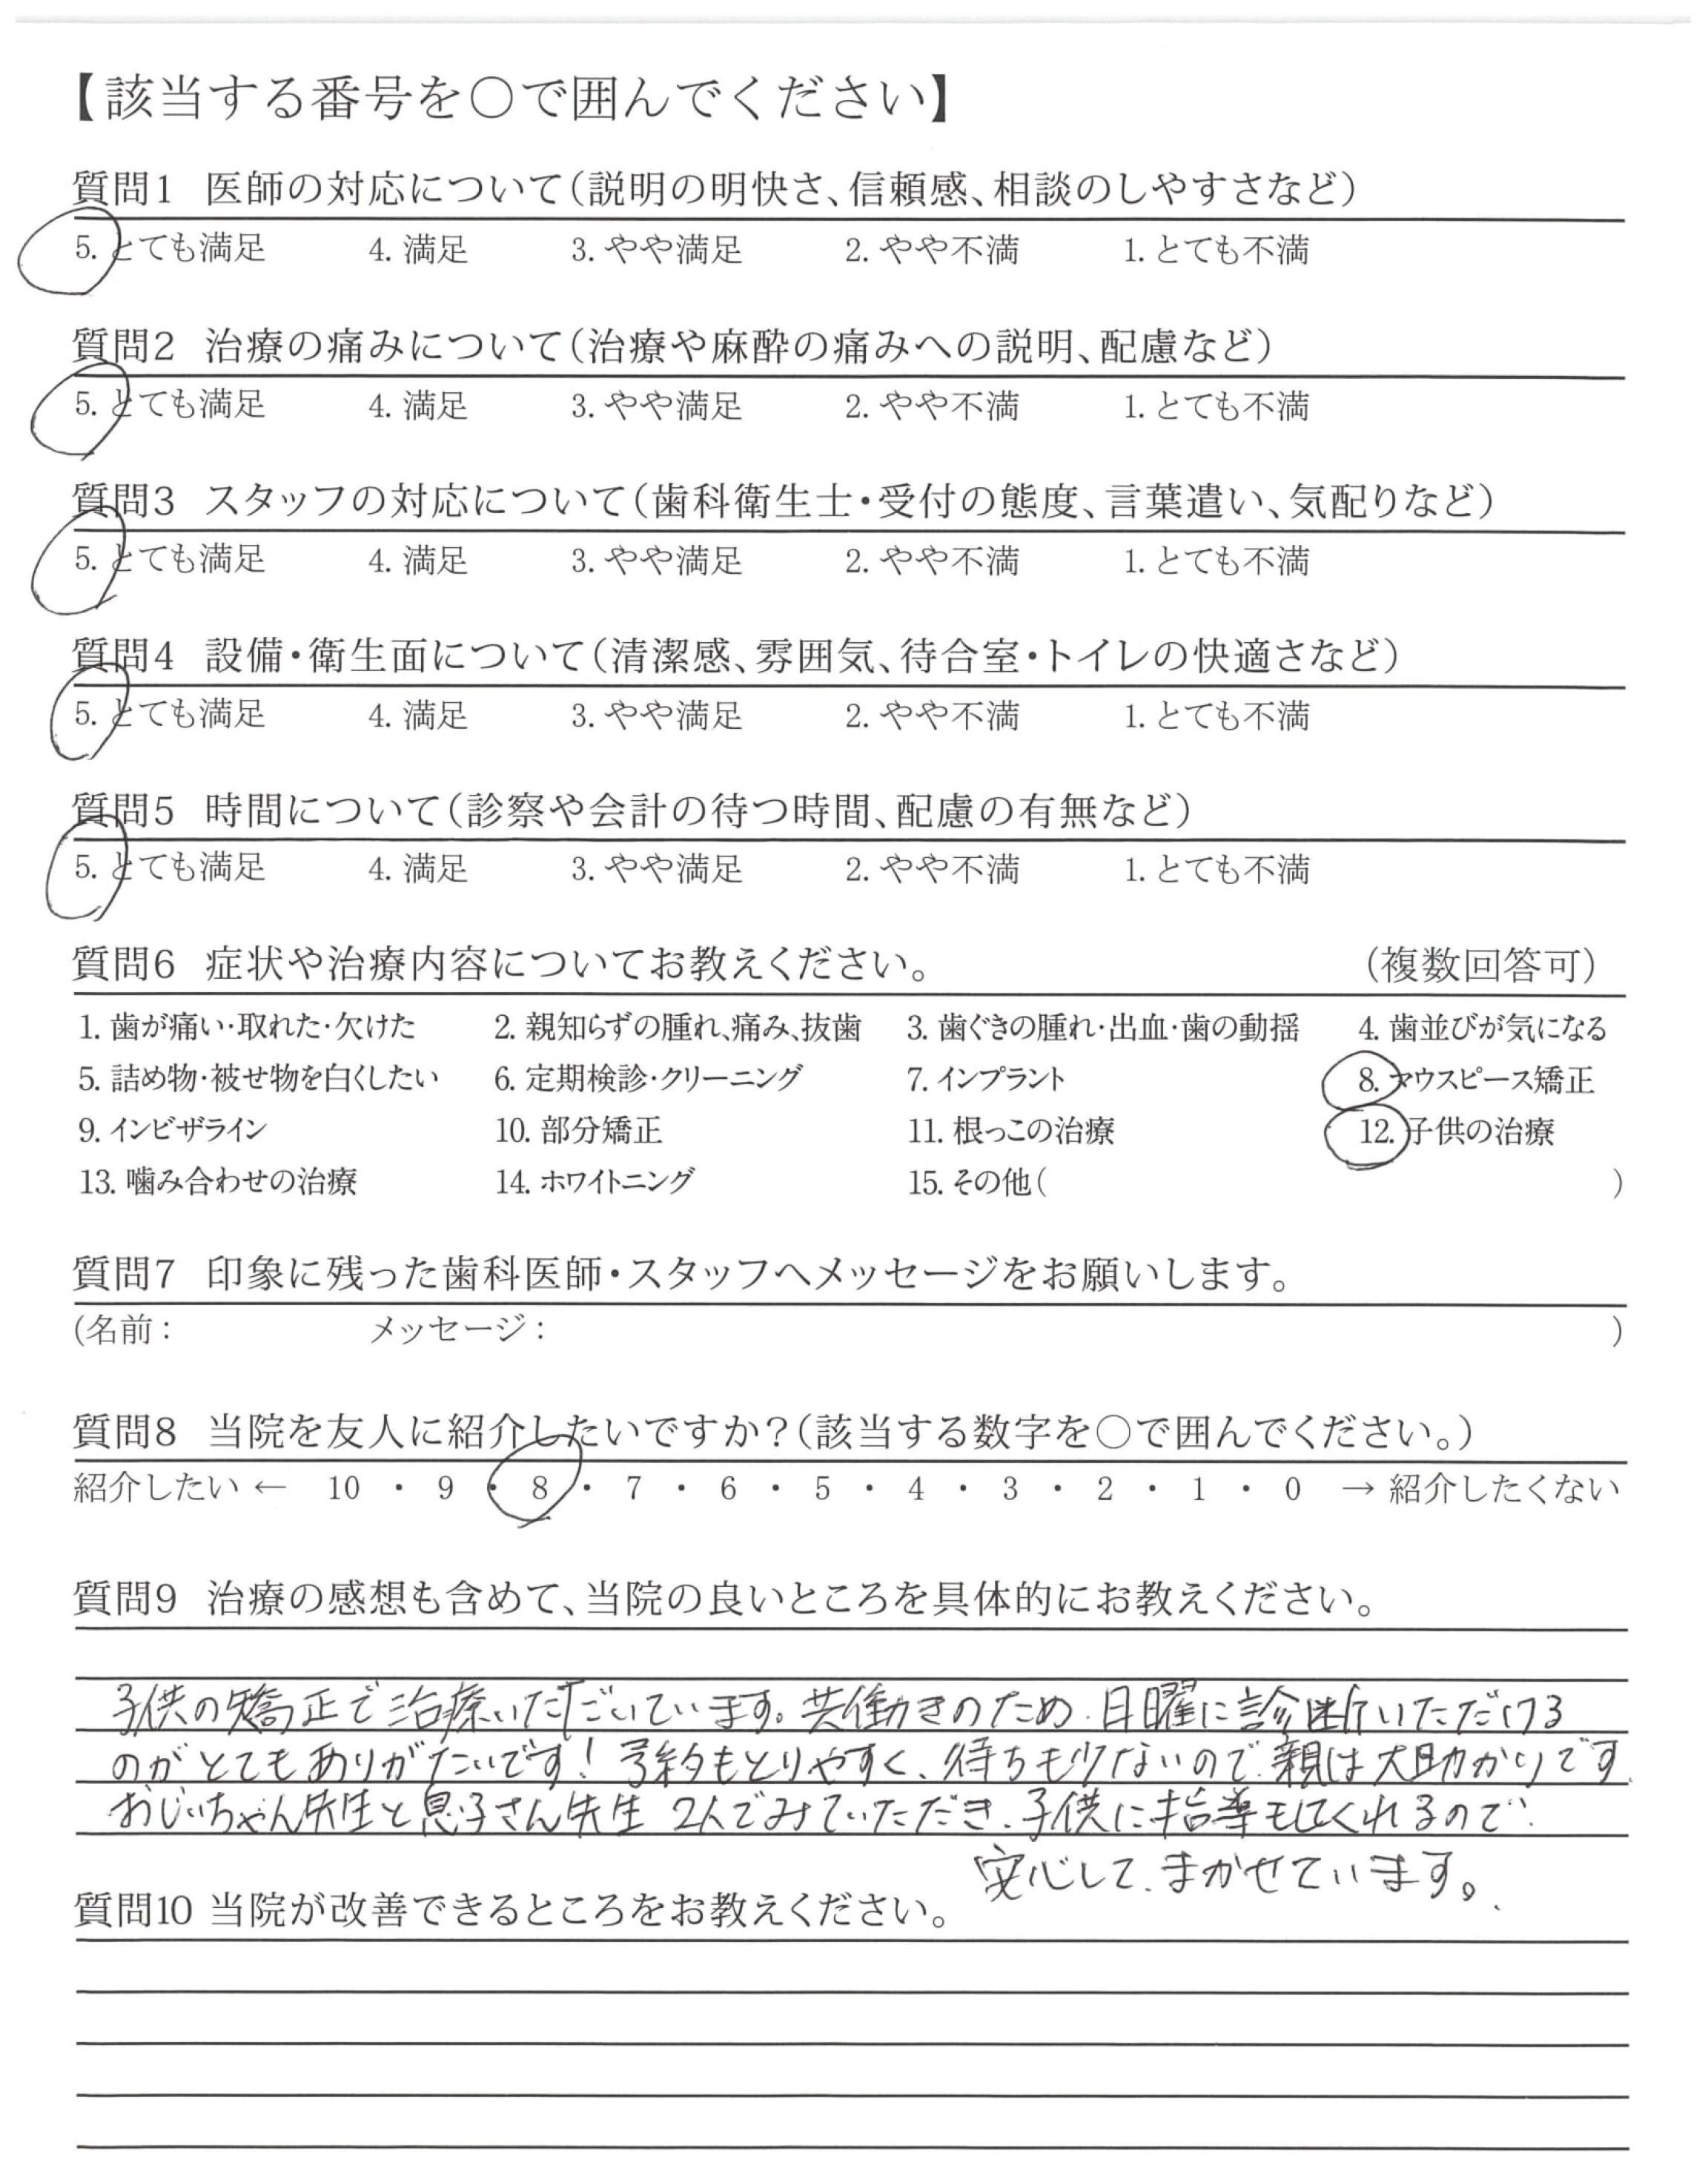 【該当する番号を○で囲んでください】
質問1 医師の対応について(説明の明快さ、信頼感、相談のしやすさなど)
5. とても満足 4. 満足 3. やや満足 2. やや不満 1. とても不満
質問2 治療の痛みについて(治療や麻酔の痛みへの説明、配慮など)
5. とても満足 4. 満足 3. やや満足 2. やや不満 1. とても不満
質問3 スタッフの対応について(歯科衛生士・受付の態度、言葉遣い、気配りなど)
5. とても満足 4. 満足 3. やや満足 2. やや不満 1. とても不満
質問4 設備・衛生面について(清潔感、雰囲気、待合室・トイレの快適さなど)
5. とても満足 4. 満足 3. やや満足 2. やや不満 1. とても不満
質問5 時間について(診察や会計の待つ時間、配慮の有無など)
5. とても満足 4. 満足 3. やや満足 2. やや不満 1. とても不満
質問6 症状や治療内容についてお教えください。 (複数回答可)
1. 歯が痛い・取れた・欠けた 2. 親知らずの腫れ、痛み、抜歯 3. 歯ぐきの腫れ・出血・歯の動揺 4. 歯並びが気になる
5. 詰め物・被せ物を白くしたい 6. 定期検診・クリーニング 7. インプラント 8. マウスピース矯正
9. インビザライン 10. 部分矯正 11. 根っこの治療 12. 子供の治療
13. 噛み合わせの治療 14. ホワイトニング 15. その他( )
質問7 印象に残った歯科医師・スタッフへメッセージをお願いします。
(名前: メッセージ: )
質問8 当院を友人に紹介したいですか?(該当する数字を○で囲んでください。)
紹介したい ← 10 ・ 9 ・ 8 ・ 7 ・ 6 ・ 5 ・ 4 ・ 3 ・ 2 ・ 1 ・ 0 → 紹介したくない
質問9 治療の感想も含めて、当院の良いところを具体的にお教えください。
子供の矯正で治療いただいています。共働きのため、日曜に診断いただける
のがとてもありがたいです!予約もとりやすく、待ちも少ないので、親は大助かりです。
おじいちゃん先生と息子さん先生 2人でみていただき、子供に指導もしてくれるので、
安心して、まかせています。
質問10 当院が改善できるところをお教えください。